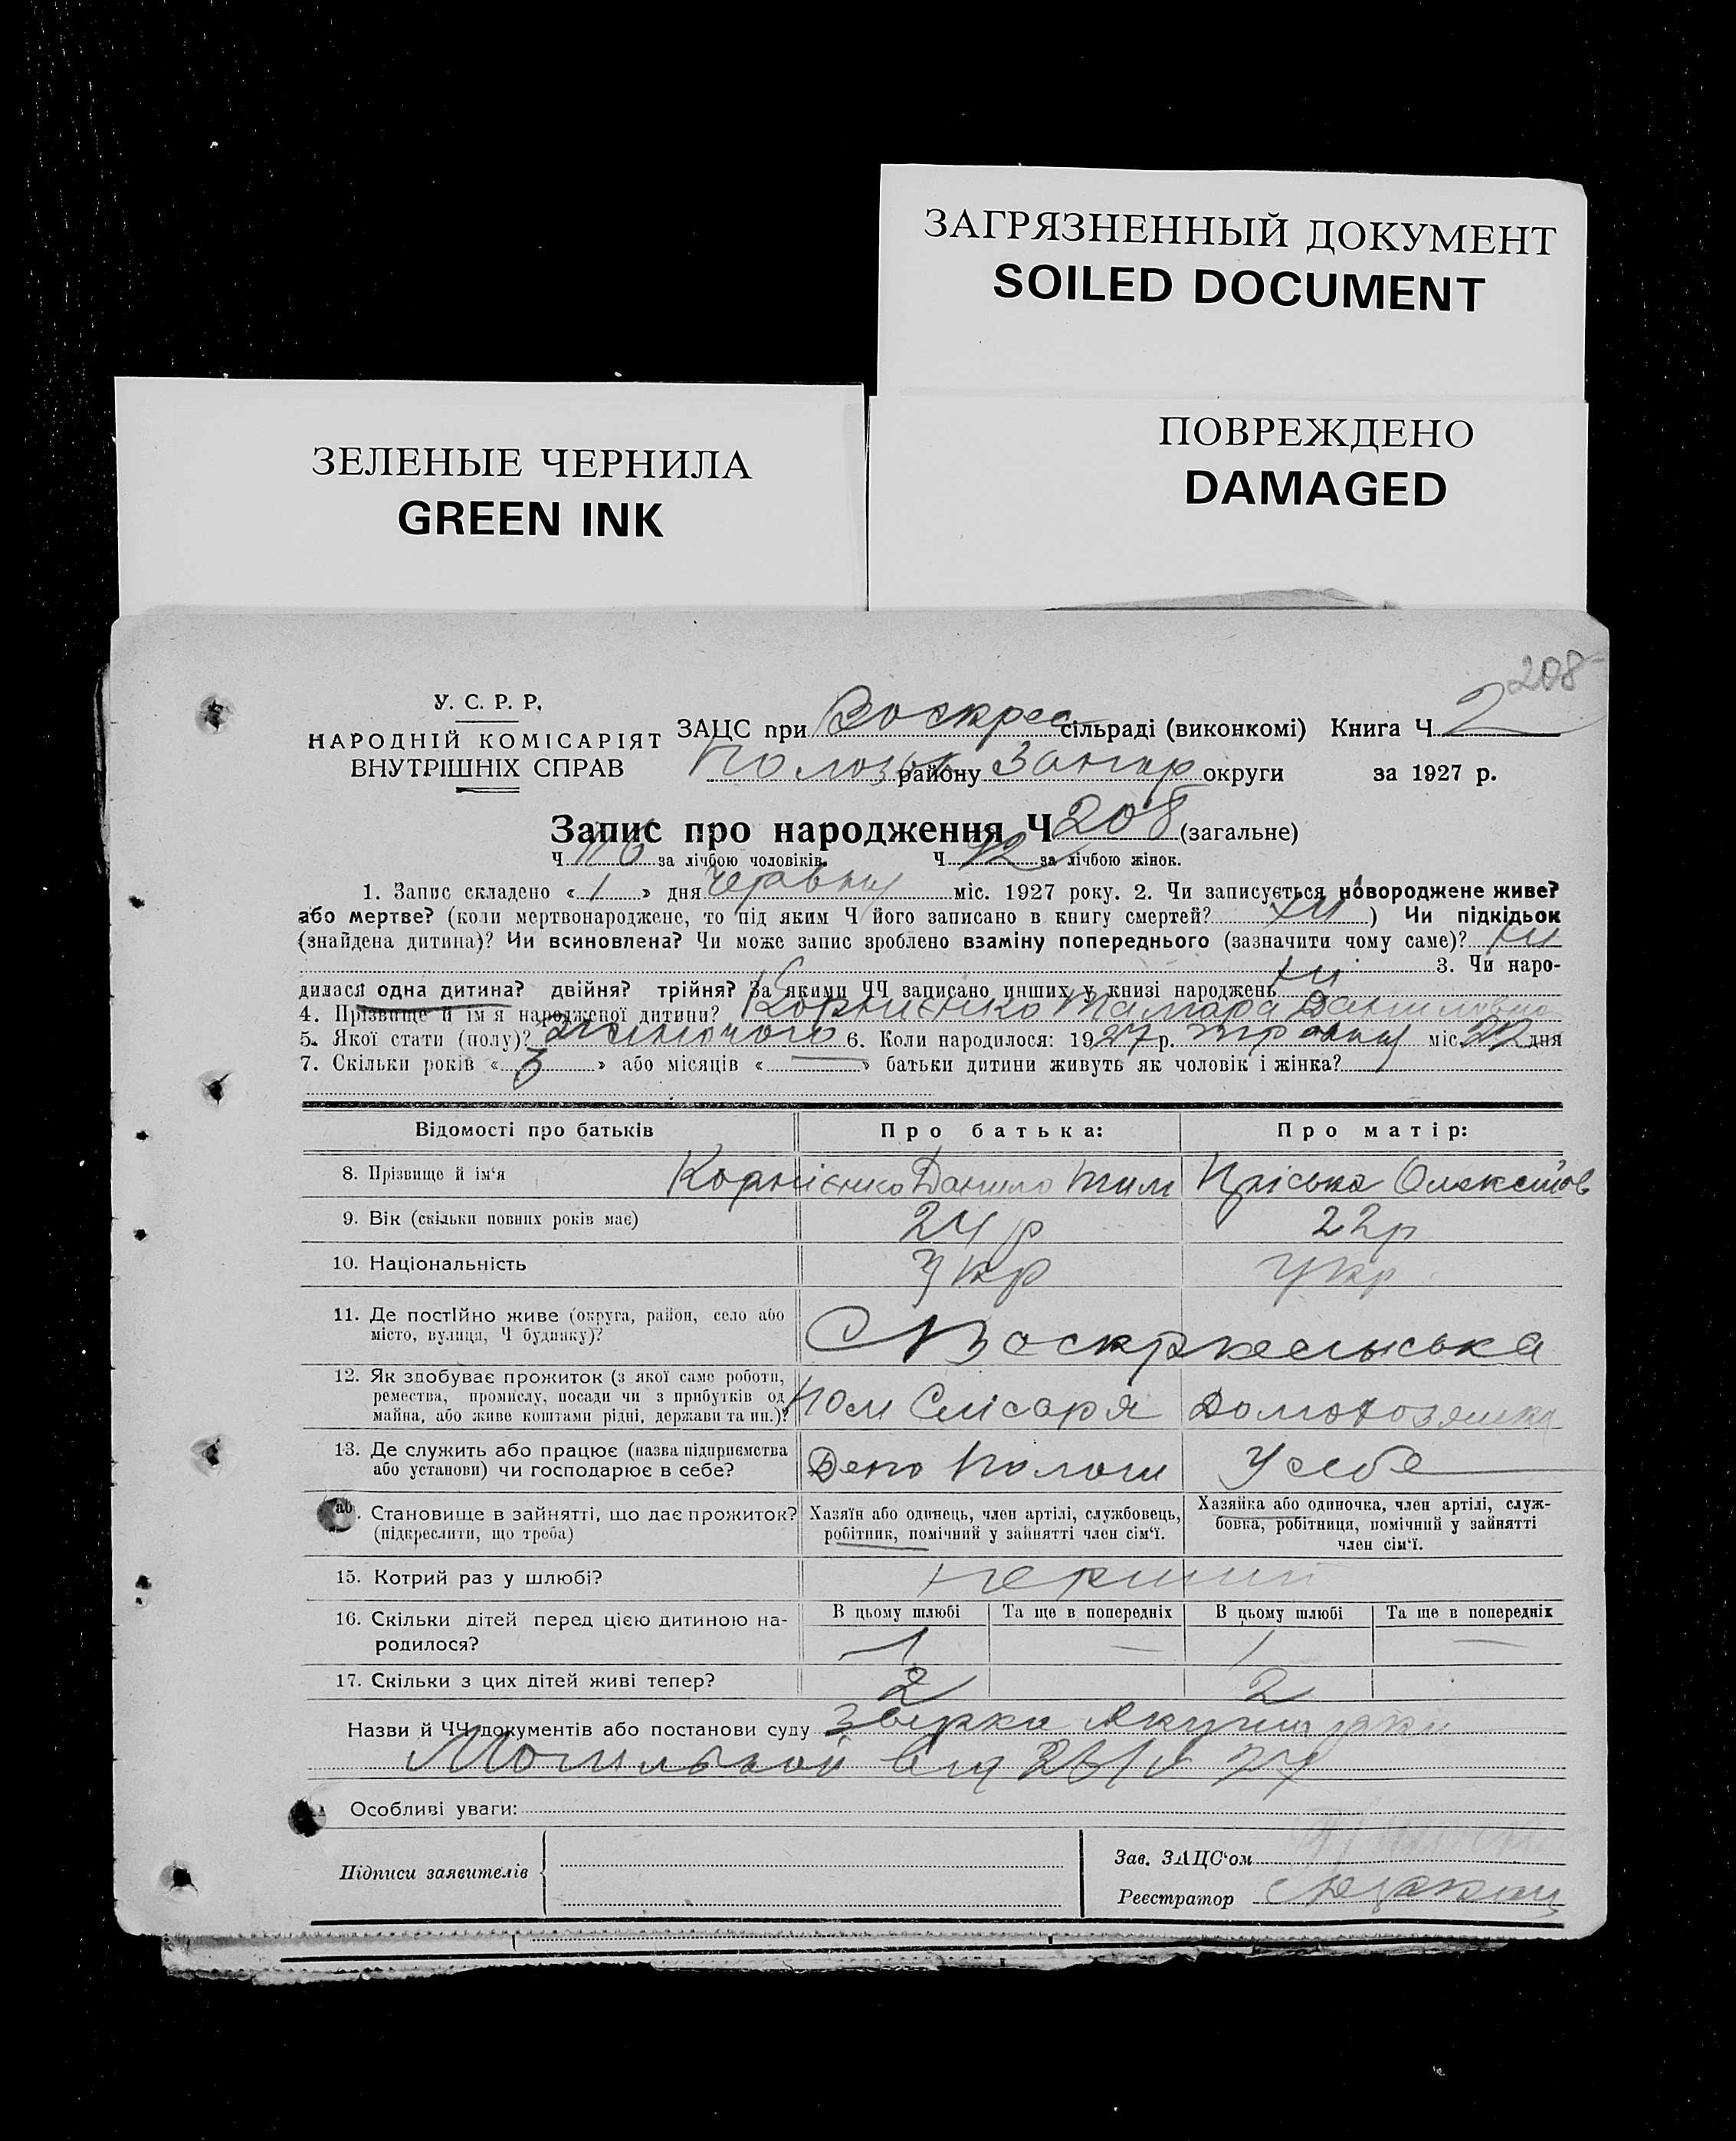 ЗАГРЯЗНЕННЫЙ ДОКУМЕНТ
SOILED DOCUMENT
ПОВРЕЖДЕНО
DAMAGED
ЗЕЛЕНЫЕ ЧЕРНИЛА
GREEN INK
208
У. С. Р. Р.
НАРОДНІЙ КОМІСАРІЯТ
ВНУТРІШНІХ СПРАВ
ЗАЦС при Воскрес сільраді (виконкомі) Книга Ч 2
району округи за 1927 р.
Запис про народження Ч 208 (загальне)
Ч 116 за лічбою чоловіків. Ч за лічбою жінок.
1. Запис складено «1» дня Червня міс. 1927 року. 2. Чи записується новороджене живе?
або мертве? (коли мертвонароджене, то під яким Ч його записано в книгу смертей? ) Чи підкідьок
(знайдена дитина)? Чи всиновлена? Чи може запис зроблено взаміну попереднього (зазначити чому саме)?
3. Чи наро-
дилася одна дитина? двійня? трійня? За якими ЧЧ записано инших у книзі народжень
4. Прізвище й ім'я народженої дитини? Корнієнко Тамара Данилівна
5. Якої стати (полу)? жіночого 6. Коли народилося: 1927 р. травня міс. 22 дня
7. Скільки років «3» або місяців «—» батьки дитини живуть як чоловік і жінка?
Відомості про батьків Про батька: Про матір:
8. Прізвище й ім'я Корнієнко Данило Тим Пріська Олексіїов
9. Вік (скільки повних років має) 24 р 22 р
10. Національність Укр Укр
11. Де постійно живе (округа, район, село або
місто, вулиця, Ч будинку)?
12. Як здобуває прожиток (з якої саме роботи,
ремества, промислу, посади чи з прибутків од
майна, або живе коштами рідні, держави та ин.)? Пом Слісаря Домохозяшка
13. Де служить або працює (назва підприємства
або установи) чи господарює в себе? Депо Пологи У себе
Становище в зайнятті, що дає прожиток?
(підкреслити, що треба)
Хазяїн або одинець, член артілі, службовець,
робітник, помічний у зайнятті член сім'ї.
Хазяйка або одиночка, член артілі, служ-
бовка, робітниця, помічний у зайнятті
член сім'ї.
15. Котрий раз у шлюбі? перший
16. Скільки дітей перед цією дитиною на-
родилося?
В цьому шлюбі Та ще в попередніх В цьому шлюбі Та ще в попередніх
1 — 1 —
17. Скільки з цих дітей живі тепер? 2 2
Назви й ЧЧ документів або постанови суду
Особливі уваги:
Підписи заявителів
Зав. ЗАЦС'ом
Реєстратор